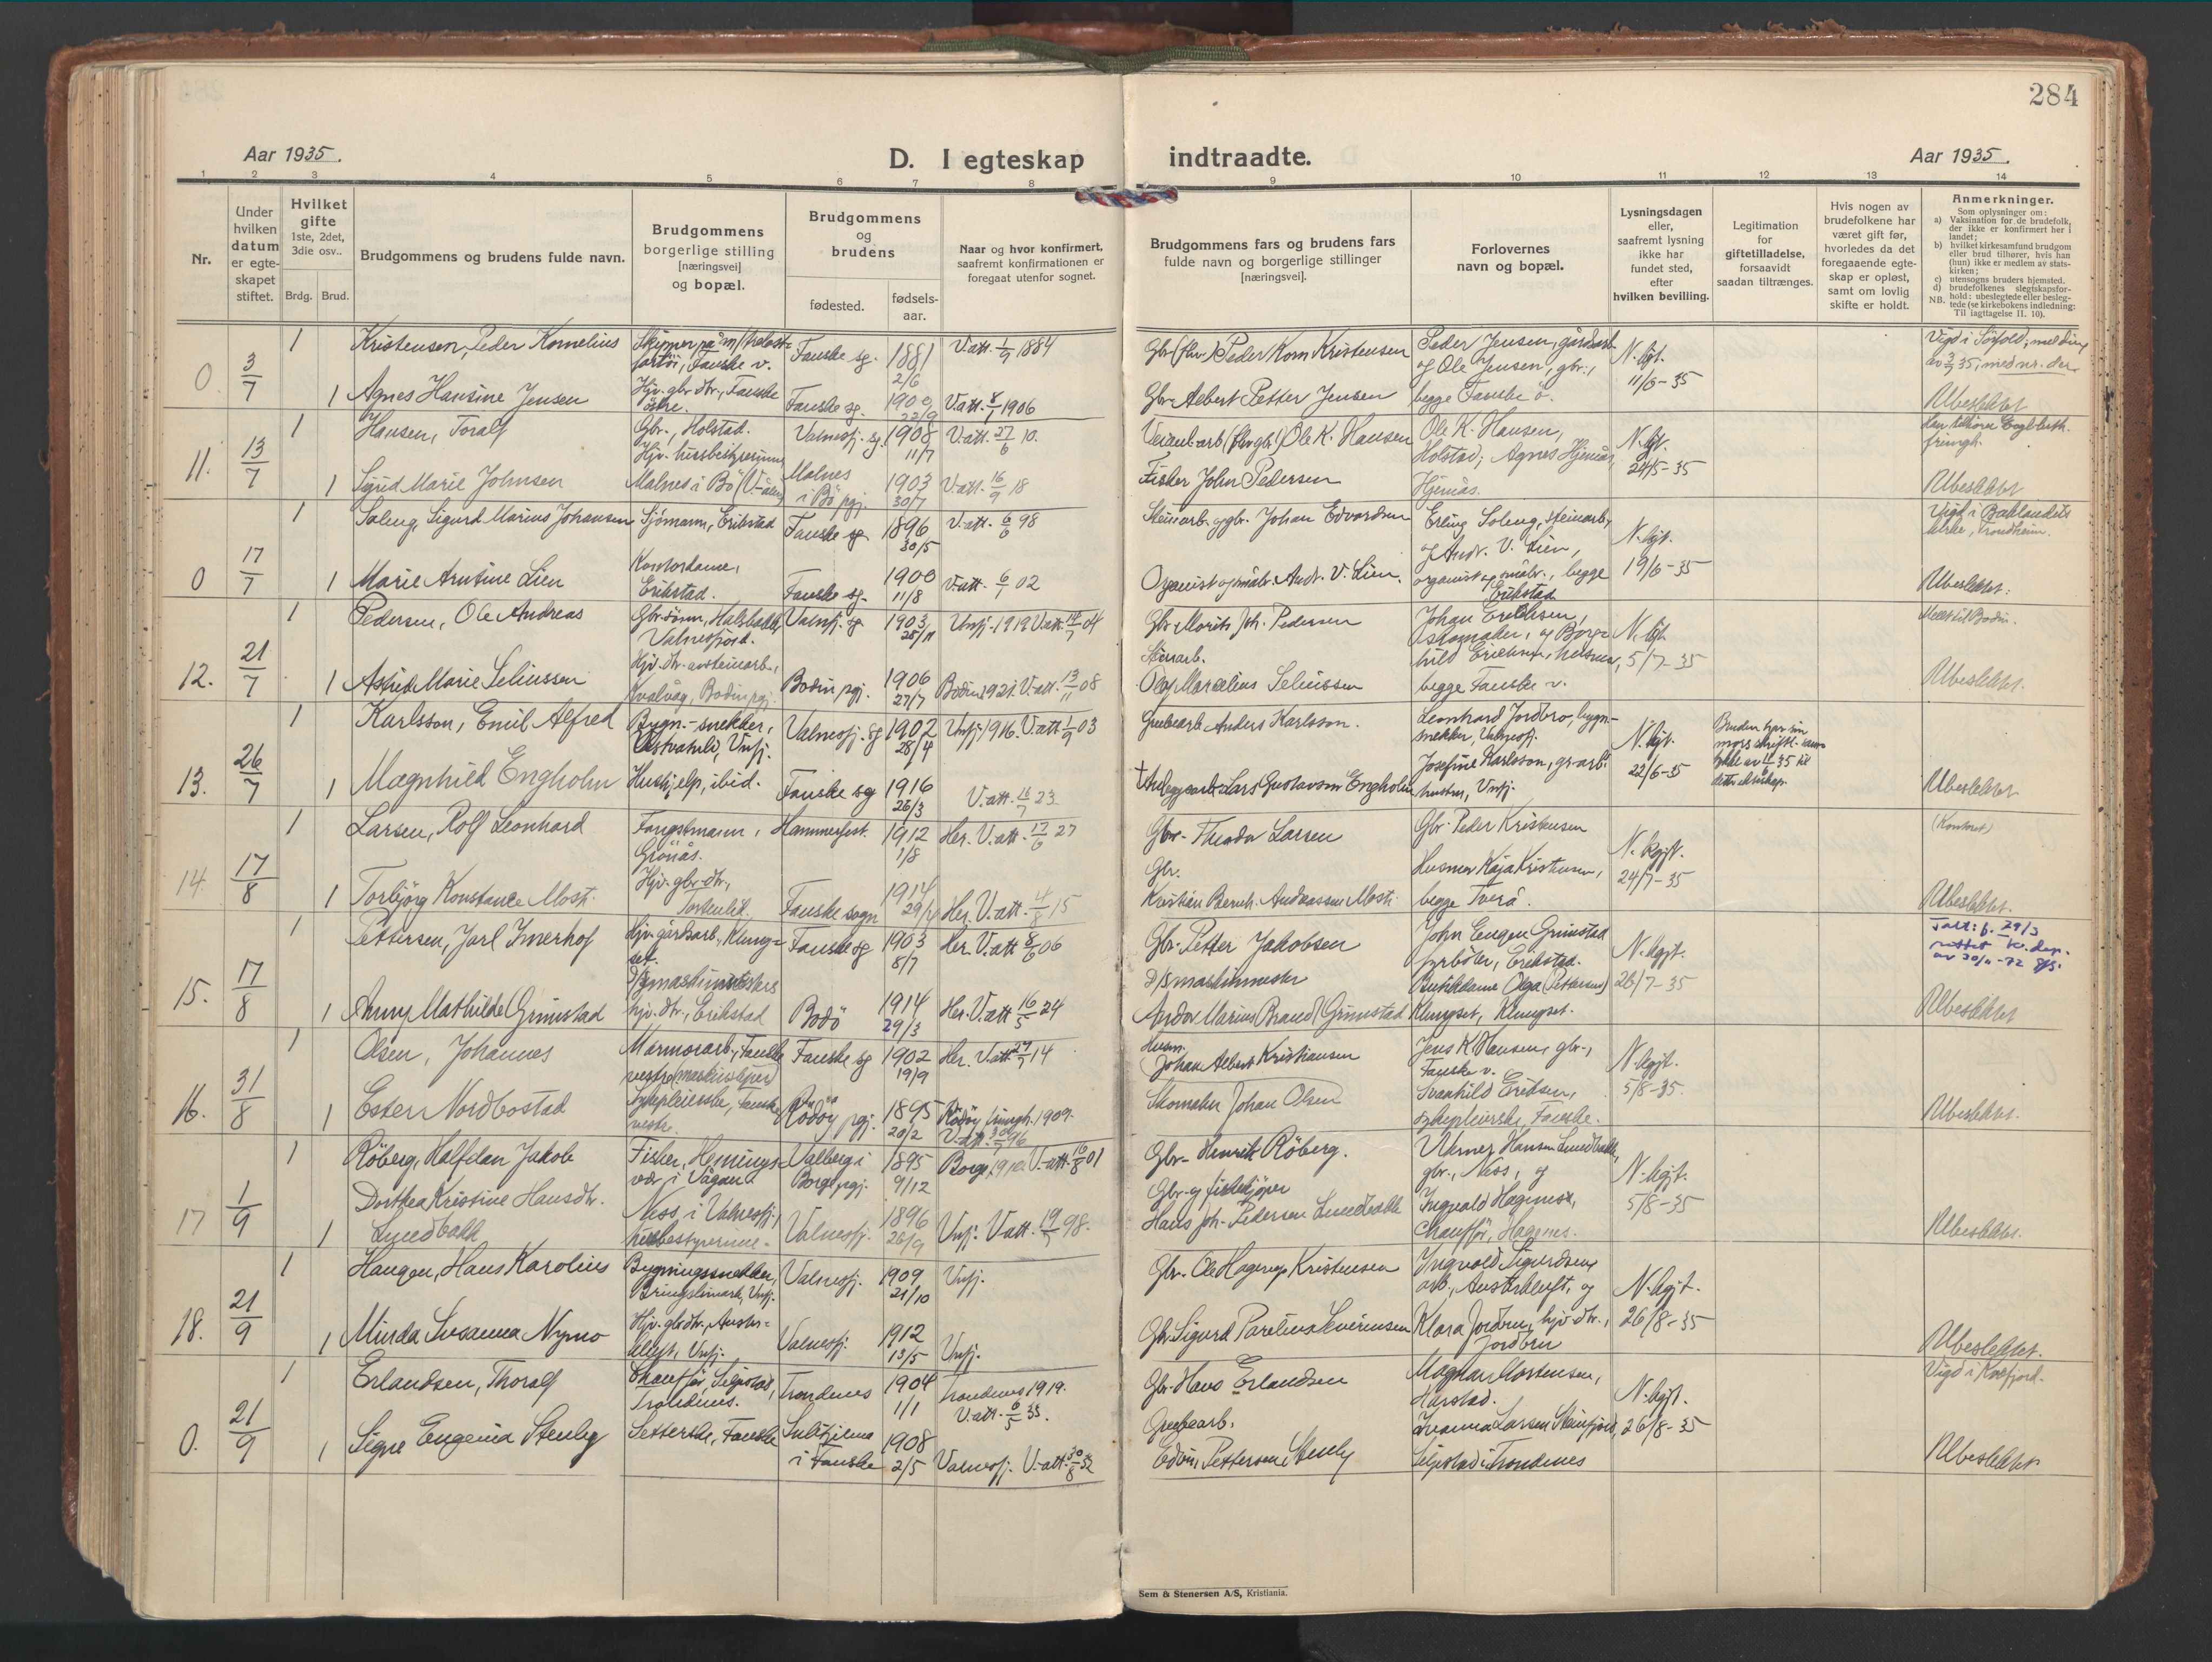 284
Aar 1935.
D. I egteskap indtraadte.
Aar 1935.
1 2 3 4 5 6 7 8 9 10 11 12 13 14
Nr.
Under hvilken datum er egte-skapet stiftet.
Hvilket gifte
1ste, 2det, 3die osv..
Brdg. Brud.
Brudgommens og brudens fulde navn.
Brudgommens borgerlige stilling [næringsvei] og bopæl.
Brudgommens og brudens
fødested. fødsels-aar.
Naar og hvor konfirmert, saafremt konfirmationen er foregaat utenfor sognet.
Brudgommens fars og brudens fars fulde navn og borgerlige stillinger [næringsvei].
Forlovernes navn og bopæl.
Lysningsdagen eller, saafremt lysning ikke har fundet sted, efter hvilken bevilling.
Legitimation for giftetilladelse, forsaavidt saadan tiltrænges.
Hvis nogen av brudefolkene har været gift før, hvorledes da det foregaaende egte-skap er opløst, samt om lovlig skifte er holdt.
Anmerkninger.
Som oplysninger om:
a) Vaksination for de brudefolk, der ikke er konfirmert her i landet;
b) hvilket kirkesamfund brudgom eller brud tilhører, hvis han (hun) ikke er medlem av stats-kirken;
c) utensogns bruders hjemsted.
d) brudefolkenes slegtskapsfor-hold: ubeslegtede eller besleg-tede (se kirkebokens indledning: Til iagttagelse II. 10).
NB.
0 3/7 1 Kristensen, Peder Kornelius
Fauske v. Fauske sg. 1881 2/6 V.att. 1/9 1884
Peder Korn Kristensen
Peder Jensen, gårdsarb.
og Ole Jensen, gbr.,
begge Fauske ö.
N. kjt. 11/6-35
Vigd i Sörfold, melding
1 Agnes Hansine Jensen
Hjv. gbr. dtr., Fauske östre. Fauske sg. 1900 22/9 V.att. 8/1 1906
Gbr. Albert Petter Jensen
Ubeslektet
11. 13/7 1 Hansen, Toralf
Gbr., Holstad. Valnesfj. sg. 1908 11/7 V.att. 27/6 10.
Ole K. Hansen
Ole K. Hansen,
Holstad; Agnes Hjemås,
Hjemås.
N. kjt. 24/5-35
1 Sigrid Marie Johnsen
Malnes i Bö Malnes i Bö pgj. 1903 30/7 V.att. 16/9 18
Fisker John Pedersen
Ubeslektet
0 17/7 1 Soleng, Sigurd Marius Johansen
Sjömann, Erikstad Fauske sg 1896 30/5 V.att. 6/6 98
Steinarb. og gbr. Johan Edvardsen
Erling Soleng, steinarb.,
og Andr. V. Lien,
organist og småbr., begge
Erikstad
N. kjt. 19/6-35
Vigd i Baklandets
kirke, Trondheim.
1 Marie Arntine Lien
Kontordame, Erikstad. Fauske sg. 1900 11/8 V.att. 6/7 02
Organist og småbr. Andr. V. Lien.
Ubeslektet.
12. 21/7 1 Pedersen, Ole Andreas
Valnesfjord. Valnesfj. sg 1903 25/11
Gbr. Morits Joh. Pedersen
Johan Eriksen,
begge Fauske v.
N. kjt. 5/7-35
Meldt til Bodin.
1 Astrid Marie Seliussen
Hjv. dtr. av steinarb., Kvalvåg, Bodin pgj. Bodin pgj. 1906 27/7 Bodin 1921. V.att. 13/11 08
Steinarb.
Olaf Marcelius Seliussen
Ubeslektet.
13. 26/7 1 Karlsson, Emil Alfred
Bygn.-snekker, Valnesfj. sg 1902 28/4 Vnfj. 1916. V.att. 1/9 03
Grubearb. Anders Karlsson.
Leonhard Jordbro, bygn-
snekker, Valnesfj.
Josefine Karlsson, gr.arb.
hustru, Vnfj.
N. kjt. 22/6-35
Bruden har sin
mors skriftl. sam-
tykke av 35 til
dette ekteskap.
1 Magnhild Engholm
Hushjelp, ibid. Fauske sg 1916 26/3 V.att. 16/7 23
† Anleggsarb. Lars Gustavson Engholm
Ubeslektet
14. 17/8 1 Larsen, Rolf Leonhard
Fangstmann, Grönås. Hammerfest. 1912 1/8 Her. V.att. 17/6 27
Gbr. Theodor Larsen
Gbr. Peder Kristensen
Husmor Kaja Kristensen,
begge Tverå.
N. kgjt. 24/7-35
(Kontoret)
1 Torbjörg Konstance Mosti
Hjv. gbr. dtr., Fauske sogn 1914 Her. V.att. 4/8 15
Gbr.
Kristian Bernh. Andreassen Mosti
Ubeslektet.
15. 17/8 1 Pettersen, Jarl Imerhof
Hjv. gårdsarb., Klung-set. Fauske sg 1903 8/7 Her. V.att 8/6 06
Gbr. Petter Jakobsen
John Eugen Grimstad
fyrböter, Erikstad.
Butikkdame Olga (Pettersen)
Klungset, Klungset.
N. kgjt. 26/7-35
f. 29/3
rettet
1 Anny Mathilde Grimstad
D/S maskinmesters hjv. dtr., Erikstad Bodö 1914 29/3 Her. V.att 16/5 24
D/S maskinmester
Andor Marius Brand Grimstad
Ubeslektet
16. 31/8 1 Olsen, Johannes
Marmorarb., Fauske vestre Fauske sg 1902 19/9 Her. V.att 27/7 14
Johan Albert Kristiansen
Jens K. Hansen, gbr.,
Fauske v.
Svanhild Eriksen,
sykepleierske, Fauske.
N. kgjt. 5/8-35.
1 Ester Nordbostad
Sykepleierske, Fauske vestre. Rödöy pgj. 1895 20/2 Rödöy 1909.
Skomaker Johan Olsen
Ubeslektet.
17 1/9 1 Röberg, Halfdan Jakob
Fisker, Hennings-vær i Vågan. Valberg i Borge pgj. 1895 9/12 Borge, 1910. V.att. 16/8 01
Gbr. Henrik Röberg.
Verner Hansen Lundbakk,
gbr., Ness, og
Ingvald Hagenes,
Chauffør, Hagenes.
N. kgjt. 5/8-35
1 Dorthea Kristine Hansdtr. Lundbakk
Ness i Valnesfj., husbestyrerinne. Valnesfj. 1896 26/9 Vnfj. V.att. 19/7 98.
Gbr. og fiskekjöper
Hans Joh. Pedersen Lundbakk
Ubeslektet.
18. 21/9 1 Haugen, Hans Karolius
Bygningssnekker, Bringslimark, Vnfj. Valnesfj. 1909 21/10 Vnfj.
Gbr. Ole Hagerup Kristensen
Ingvald Sigurdsen,
arb., Austerkluft, og
Klara Jordbru, hjv. dtr.,
Jordbru
N. kgjt. 26/8-35
1 Minda Susanna Nymo
Hjv. gbr. dtr., Auster-kluft, Vnfj. Valnesfj. 1912 13/5 Vnfj.
Gbr. Sigurd Parelius Severinsen
Ubeslektet.
0. 21/9 1 Erlandsen, Thoralf
Chauffør, Trondenes. Trondenes 1904 1/1 Trondenes 1919. V.att. 6/5 35.
Gbr. Hans Erlandsen
Magnar Mortensen,
Harstad.
N. kgjt. 26/8-35
Vigd i Kvæfjord.
1 Signe Eugenia Stenby
Fauske Sulitjelma i Fauske 1908 2/5 Valnesfj. V.att. 30/8 32
Grubearb.
Edvin Pettersen Stenby
Ubeslektet
Sem & Stenersen A/S, Kristiania.